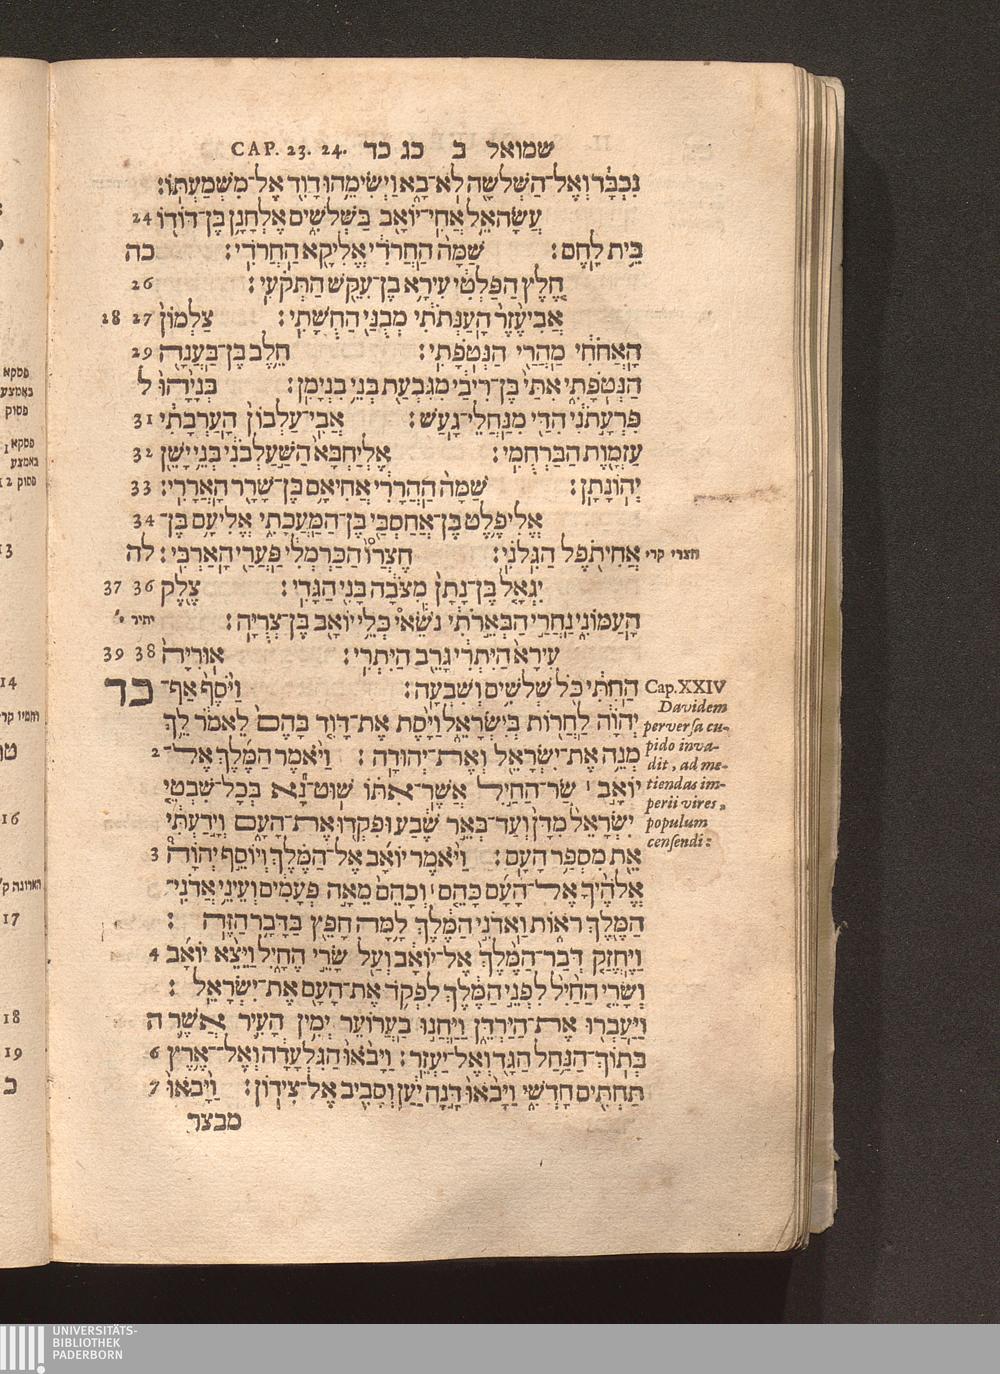 CAP. 23. 24. שמואל ב כג כד
נִכְבָּ֔ר וְאֶל־הַשְּׁלֹשָׁ֖ה לֹא־בָ֑א וַיְשִׂימֵ֥הוּ דָוִ֖ד אֶל־מִשְׁמַעְתּֽוֹ׃
24 עֲשָׂהאֵ֥ל אֲחִֽי־יוֹאָ֖ב בַּשְּׁלֹשִׁ֑ים אֶלְחָנָ֥ן בֶּן־דּוֹד֖וֹ
בֵּ֥ית לָֽחֶם׃ שַׁמָּה֙ הַֽחֲרֹדִ֔י אֱלִיקָ֖א הַחֲרֹדִֽי׃ כה
26 חֶ֚לֶץ הַפַּלְטִ֔י עִירָ֥א בֶן־עִקֵּ֖שׁ הַתְּקֹעִֽי׃
27 28 אֲבִיעֶ֙זֶר֙ הָֽעַנְּתֹתִ֔י מְבֻנַּ֖י הַחֻשָׁתִֽי׃ צַלְמוֹן֙
29 הָֽאֲחֹחִ֔י מַהְרַ֖י הַנְּטֹפָתִֽי׃ חֵ֥לֶב בֶּֽן־בַּעֲנָ֖ה
הַנְּטֹפָתִ֑י אִתַּי֙ בֶּן־רִיבַ֔י מִגִּבְעַ֖ת בְּנֵ֥י בִנְיָמִֽן׃ בְּנָיָ֙הוּ֙ ל
31 פִּרְעָ֣תֹנִ֔י הִדַּ֖י מִנַּ֥חֲלֵי גָֽעַשׁ׃ אֲבִֽי־עַלְבוֹן֙ הָֽעַרְבָתִ֔י
32 עַזְמָ֖וֶת הַבַּרְחֻמִֽי׃ אֶלְיַחְבָּא֙ הַשַּׁ֣עַלְבֹנִ֔י בְּנֵ֥י יָשֵׁ֖ן
33 יְהוֹנָתָֽן׃ שַׁמָּה֙ הַֽהֲרָרִ֔י אֲחִיאָ֥ם בֶּן־שָׁרָ֖ר הָארָרִֽי׃
34 אֱלִיפֶ֥לֶט בֶּן־אֲחַסְבַּ֖י בֶּן־הַמַּֽעֲכָתִ֑י אֱלִיעָ֥ם בֶּן־
אֲחִיתֹ֖פֶל הַגִּלֹנִֽי׃ חֶצְרוֹ֙ הַֽכַּרְמְלִ֔י פַּעֲרַ֖י הָאַרְבִּֽי׃ לה
חצרי קרי
36 37 יִגְאָ֤ל בֶּן־נָתָן֙ מִצֹּבָ֔ה בָּנִ֖י הַגָּדִֽי׃ צֶ֖לֶק
הָעַמּוֹנִ֑י נַחֲרַי֙ הַבְּאֵ֣רֹתִ֔י נֹשְׂאֵי֙ כְּלֵ֖י יוֹאָ֥ב בֶּן־צְרֻיָֽה׃ יתיר י׳
38 39 עִירָא֙ הַיִּתְרִ֔י גָּרֵ֖ב הַיִּתְרִֽי׃ אֽוּרִיָּה֙
הַֽחִתִּ֔י כֹּ֖ל שְׁלֹשִׁ֥ים וְשִׁבְעָֽה׃ וַיֹּ֙סֶף֙ אַף־ כד
יְהוָ֔ה לַחֲר֖וֹת בְּיִשְׂרָאֵ֑ל וַיָּ֨סֶת אֶת־דָּוִ֤ד בָּהֶם֙ לֵאמֹ֔ר לֵ֛ךְ
2 מְנֵ֥ה אֶת־יִשְׂרָאֵ֖ל וְאֶת־יְהוּדָֽה׃ וַיֹּ֨אמֶר הַמֶּ֜לֶךְ אֶל־
יוֹאָ֣ב׀ שַׂר־הַחַ֣יִל אֲשֶׁר־אִתּ֗וֹ שֽׁוּט־נָ֞א בְּכָל־שִׁבְטֵ֤י
יִשְׂרָאֵל֙ מִדָּן֙ וְעַד־בְּאֵ֣ר שֶׁ֔בַע וּפִקְד֖וּ אֶת־הָעָ֑ם וְיָ֣דַעְתִּ֔י
3 אֵ֖ת מִסְפַּ֥ר הָעָֽם׃ וַיֹּ֨אמֶר יוֹאָ֜ב אֶל־הַמֶּ֗לֶךְ וְיוֹסֵ֣ף יְהוָה֩
אֱלֹהֶ֨יךָ אֶל־הָעָ֜ם כָּהֵ֤ם׀ וְכָהֵם֙ מֵאָ֣ה פְעָמִ֔ים וְעֵינֵ֥י אֲדֹנִֽי־
הַמֶּ֖לֶךְ רֹא֑וֹת וַאדֹנִ֣י הַמֶּ֔לֶךְ לָ֥מָּה חָפֵ֖ץ בַּדָּבָ֥ר הַזֶּֽה׃
4 וַיֶּחֱזַ֤ק דְּבַר־הַמֶּ֙לֶךְ֙ אֶל־יוֹאָ֔ב וְעַ֖ל שָׂרֵ֣י הֶחָ֑יִל וַיֵּצֵ֨א יוֹאָ֜ב
וְשָׂרֵ֤י הַחַ֙יִל֙ לִפְנֵ֣י הַמֶּ֔לֶךְ לִפְקֹ֥ד אֶת־הָעָ֖ם אֶת־יִשְׂרָאֵֽל׃
וַיַּעַבְר֖וּ אֶת־הַיַּרְדֵּ֑ן וַיַּחֲנ֣וּ בַעֲרוֹעֵ֗ר יְמִ֥ין הָעִ֛יר אֲשֶׁ֛ר ה
6 בְּתֽוֹךְ־הַנַּ֥חַל הַגָּ֖ד וְאֶל־יַעְזֵֽר׃ וַיָּבֹ֙אוּ֙ הַגִּלְעָ֔דָה וְאֶל־אֶ֥רֶץ
7 תַּחְתִּ֖ים חָדְשִׁ֑י וַיָּבֹ֙אוּ֙ דָּ֣נָה יַּ֔עַן וְסָבִ֖יב אֶל־צִידֽוֹן׃ וַיָּבֹ֙אוּ֙
מבצר
Cap. XXIV
Davidem
perversa cu-
pido inva-
dit, ad me-
tiendas im-
perii vires,
populum
censendi:
פסקא
באמצע
פסוק
פסקא 1
באמצע
פסוק 12
13
14
והמיו קר
טו
16
הארונה ק׳
17
18
19
כ
UNIVERSITÄTS-
BIBLIOTHEK
PADERBORN